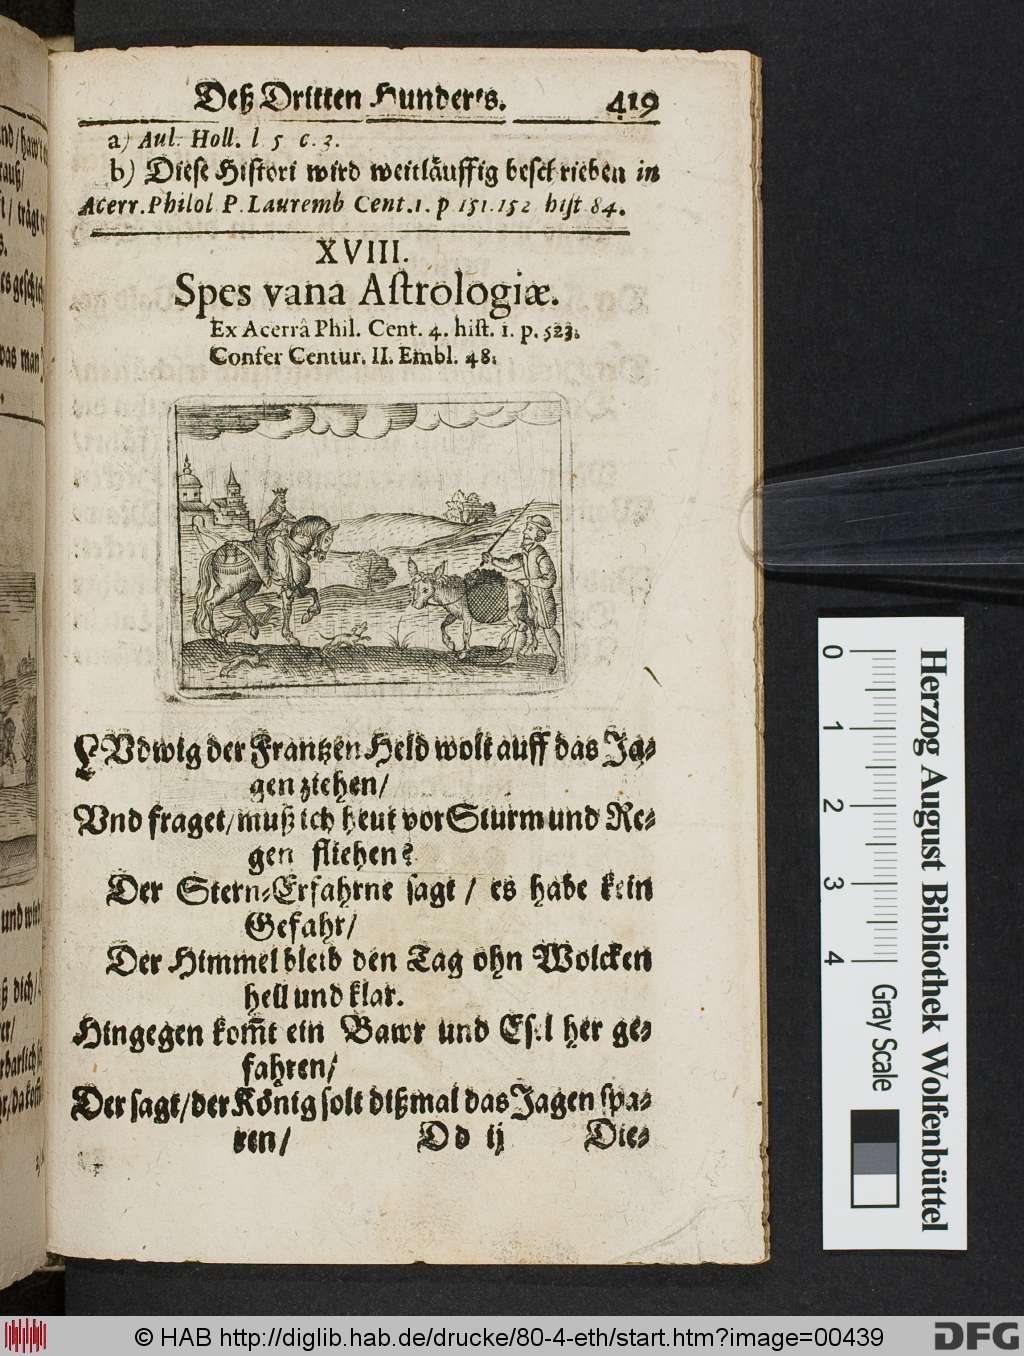 Deß Dritten Hunders. 419
a) Aul. Holl. l 5 c. 3.
b) Diese Histori wird weitläuffig beschrieben in
Acerr. Philol P. Lauremb Cent. 1. p 151. 152 hist 84.
XVIII.
Spes vana Astrologiæ.
Ex Acerrâ Phil. Cent. 4. hist. 1. p. 523.
Confer Centur. II. Embl. 48.
LVdwig der Frantzen Held wolt auff das Ja-
gen ziehen/
Vnd fraget/ muß ich heut vor Sturm und Re-
gen fliehen?
Der Stern-Erfahrne sagt / es habe kein
Gefahr/
Der Himmel bleib den Tag ohn Wolcken
hell und klar.
Hingegen kom̃t ein Bawr und Esel her ge-
fahren/
Der sagt/ der König solt dißmal das Jagen spa-
ren/ Dd ij Die-
0 1 2 3 4
Gray Scale
Herzog August Bibliothek Wolfenbüttel
© HAB http://diglib.hab.de/drucke/80-4-eth/start.htm?image=00439
DFG